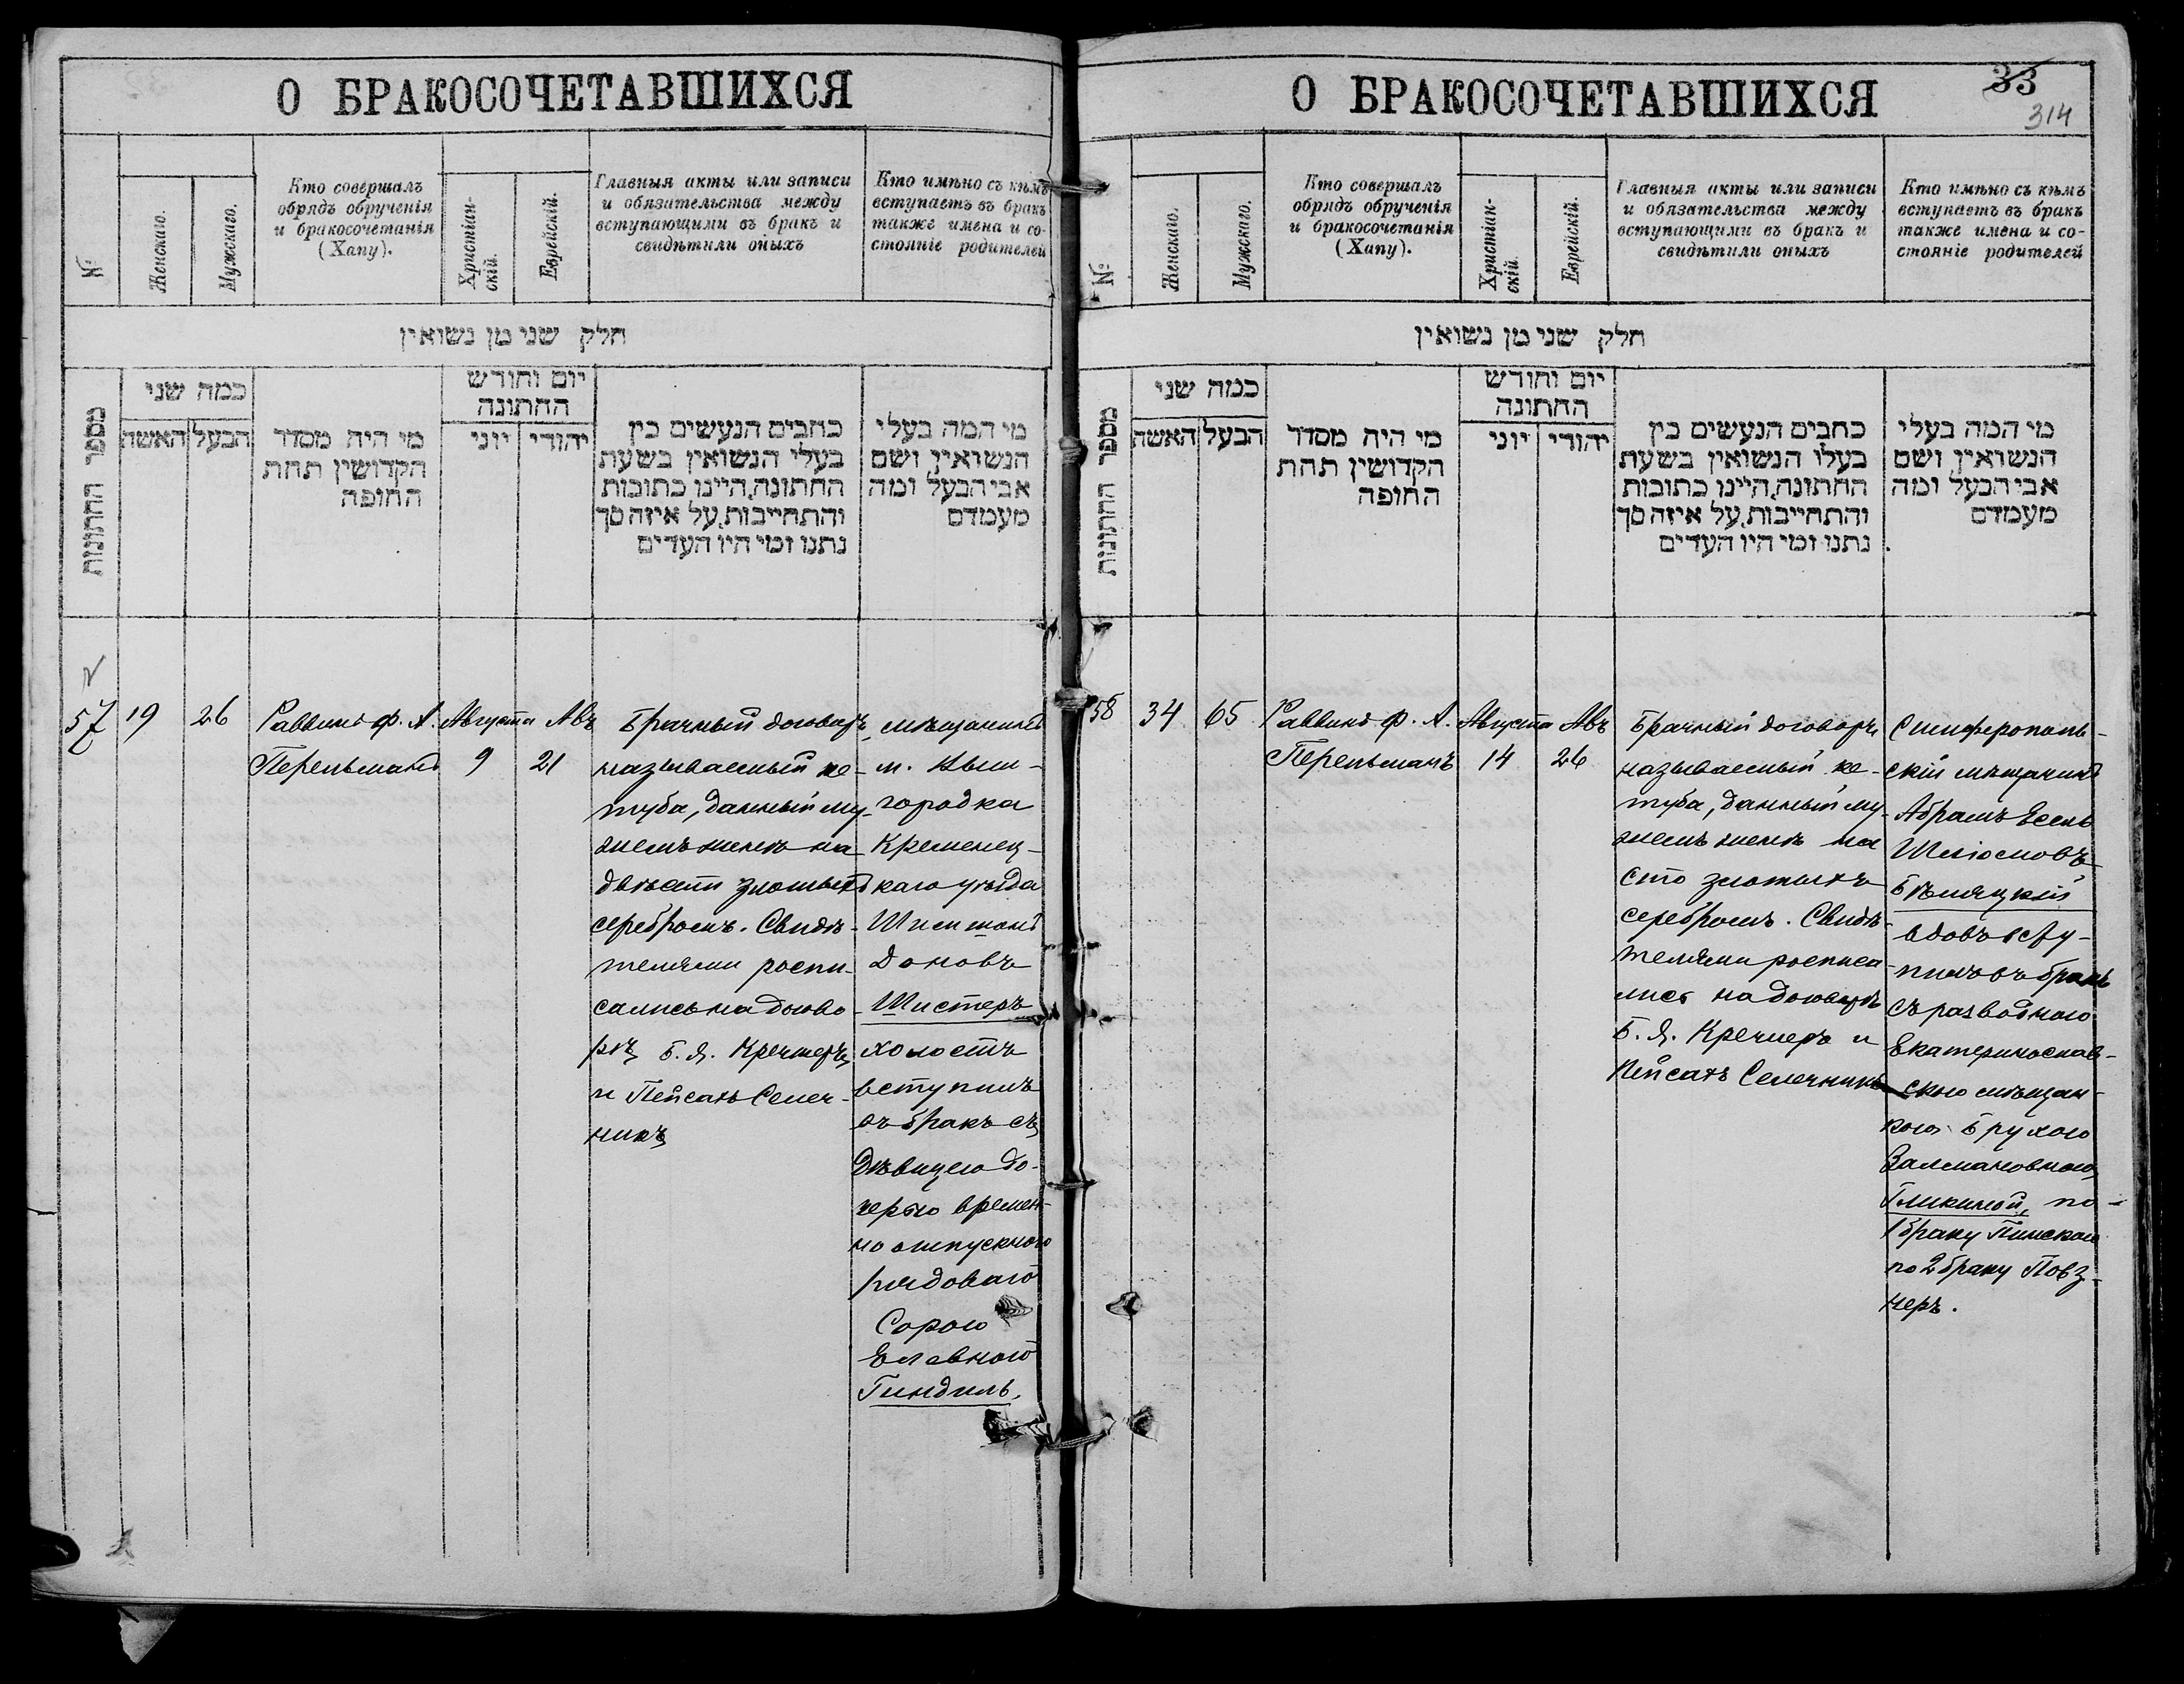 О БРАКОСОЧЕТАВШИХСЯ
№
Женскаго.
Мужскаго.
Кто совершалъ
обрядъ обрученія
и бракосочетанія
(Хапу).
Христіан-
скій.
Еврейскій.
Главныя акты или записи
и обязательства между
вступающими въ бракъ и
свидѣтили оныхъ
Кто имѣно съ кѣмъ
вступаетъ въ бракъ
также имена и со-
стояніе родителей
חלק שני מן נשואין
מספר החתונות
כמה שני
האשה
הבעל
מי היה מסדר
הקדושין תחת
החופה
יום וחודש
החתונה
יוני
יהודי
כתבים הנעשים בין
בעלי הנשואין בשעת
החתונה, היינו כתובות
והתחייבות, על איזה סך
נתנו ומי היו העדים
מי המה בעלי
הנשואין, ושם
אבי הבעל ומה
מעמדם
57
19
26
Раввинъ Ф. А.
Перельманъ
Августа
9
Авъ
21
Брачный договоръ,
называемый ке-
туба, данный му-
жемъ женѣ на
двѣсти злотыхъ
серебромъ. Свидѣ-
телями роспи-
сались на догово-
рѣ Б. Я. Кречмеръ
и Пейсахъ Селеч-
никъ
мѣщанинъ
м. Выш-
городка
Кременец-
каго уѣзда
Шимшонъ
Доновъ
Шистеръ
холостъ
вступилъ
въ бракъ съ
Дѣвицею до-
черью времен-
но отпускного
рядоваго
Сорою
Елевной
Гиндиль.
О БРАКОСОЧЕТАВШИХСЯ
33
314
№
Женскаго.
Мужскаго.
Кто совершалъ
обрядъ обрученія
и бракосочетанія
(Хапу).
Христіан-
скій.
Еврейскій.
Главныя акты или записи
и обязательства между
вступающими въ бракъ и
свидѣтили оныхъ
Кто имѣно съ кѣмъ
вступаетъ въ бракъ
также имена и со-
стояніе родителей
חלק שני מן נשואין
מספר החתונות
כמה שני
האשה
הבעל
מי היה מסדר
הקדושין תחת
החופה
יום וחודש
החתונה
יוני
יהודי
כתבים הנעשים בין
בעלו הנשואין בשעת
החתונה, היינו כתובות
והתחייבות, על איזה סך
נתנו ומי היו העדים
מי המה בעלי
הנשואין, ושם
אבי הבעל ומה
מעמדם
58
34
65
Раввинъ Ф. А.
Перельманъ
Августа
14
Авъ
26
Брачный договоръ
называемый ке-
туба, данный му-
жемъ женѣ на
сто злотыхъ
серебромъ. Свидѣ-
телями росписа-
лись на договорѣ
Б. Я. Кречмеръ и
Пейсахъ Селечникъ
Симферополь-
скій мѣщанинъ
Абрамъ Есель
Шліомовъ
Бѣляцкій
вдовъ всту-
пилъ въ бракъ
съ разводною
Екатеринослав-
скою мѣщан-
кою Брухою
Залмановною
Гликиной, по
1 браку Пинскою
по 2 браку Повз-
неръ.